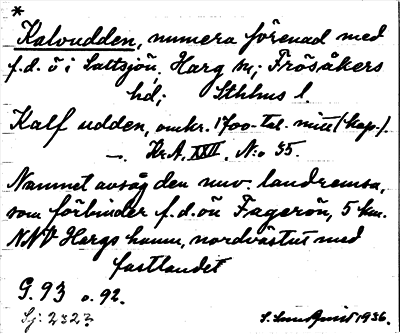 *
Kalvudden, numera förenad med
f.d. ö i Saltsjön, Harg sn; Frösåkers
hd; Sthlms l.
Kalf udden, omkr. 1700-tal. mitt (kop.).
—. Kr.A. XXII. N:o 35.
Namnet avsåg den nuv. landremsa,
som förbinder f.d. ön Fagerön, 5 km.
NNV Hargs hamn, nordvästut med
fastlandet
G. 93 o. 92.
Sj: 2323
1936.